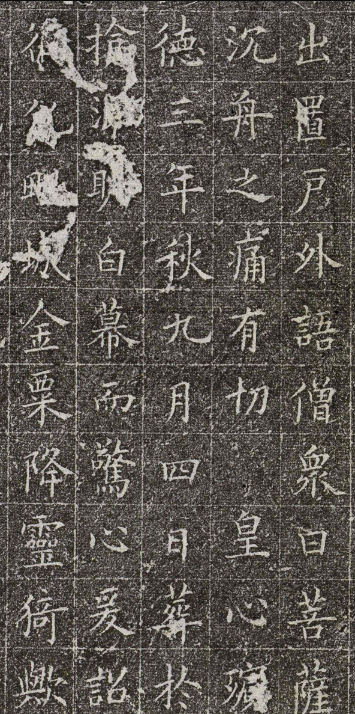 出置戶外語僧衆曰菩薩
沉舟之痛有切 皇心
德三年秋九月四日葬於
白幕而驚心爰詔
城金粟降靈猗歟